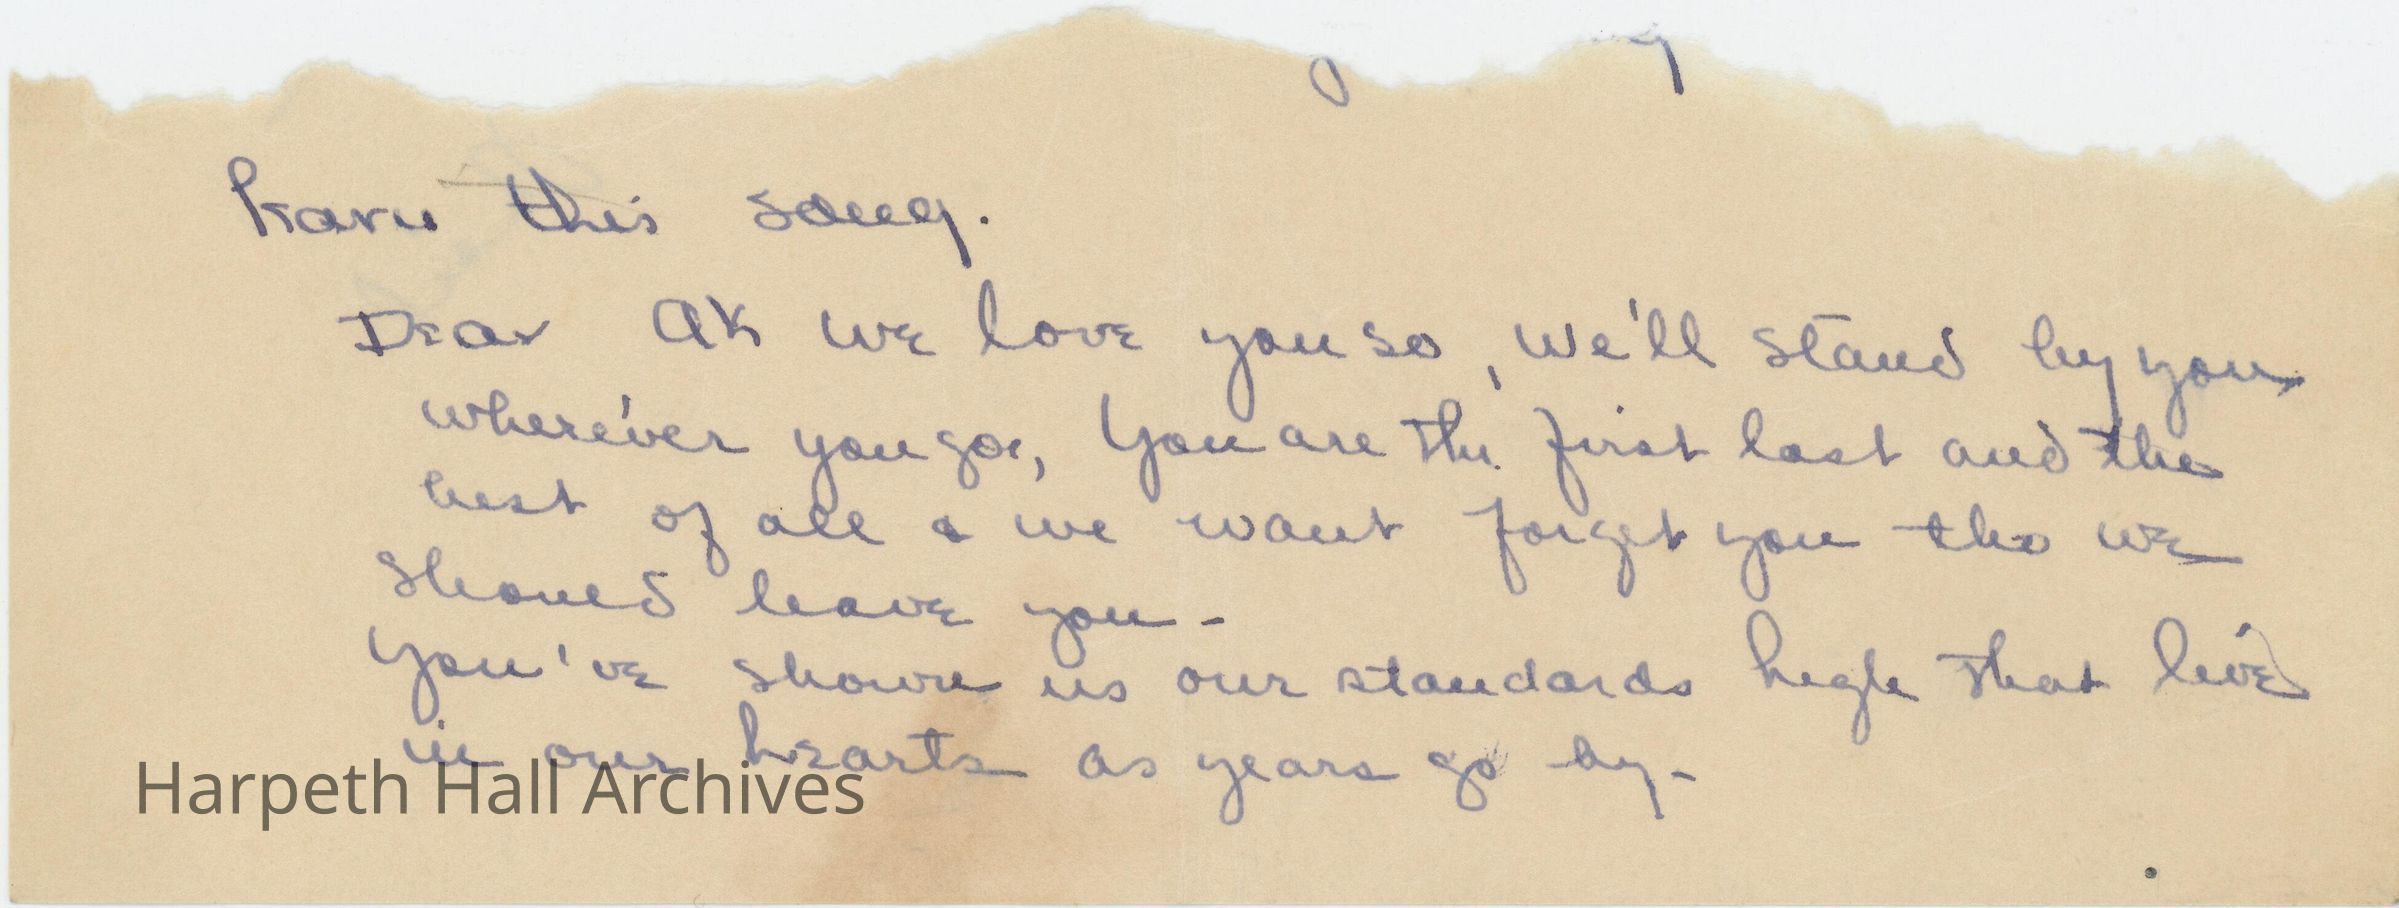 learn this song.
Dear AK we love you so, we'll stand by you
where'ever you go, You are the first last and the
best of all & we want forget you tho we
should leave you -
You've shown us our standards high that live
in our hearts as years go by -
Harpeth Hall Archives